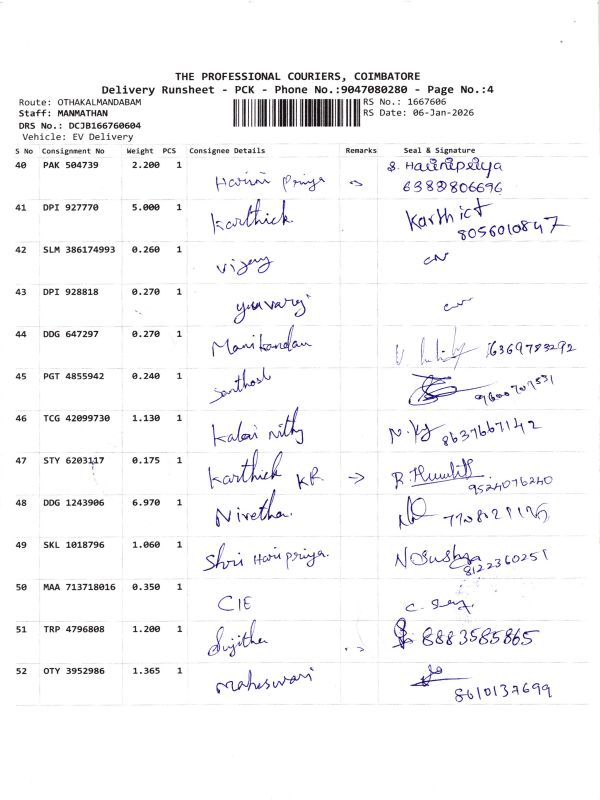 THE PROFESSIONAL COURIERS, COIMBATORE
Delivery Runsheet - PCK - Phone No.:9047080280 - Page No.:4
Route: OTHAKALMANDABAM RS No.: 1667606
Staff: MANMATHAN RS Date: 06-Jan-2026
DRS No.: DCJB166760604
Vehicle: EV Delivery
S No Consignment No Weight PCS Consignee Details Remarks Seal & Signature
40 PAK 504739 2.200 1 Harini Priya S. Harinipriya
6382806696
41 DPI 927770 5.000 1 Karthick Karthick
8056010847
42 SLM 386174993 0.260 1 Vijay
43 DPI 928818 0.270 1 yuvaraj
44 DDG 647297 0.270 1 Manikandan 6369783292
45 PGT 4855942 0.240 1 Santhosh 9600707531
46 TCG 42099730 1.130 1 Kalai nithy 8637667142
47 STY 6203117 0.175 1 Karthick KR → 9524076240
48 DDG 1243906 6.970 1 Nivetha.
49 SKL 1018796 1.060 1 Shri Haripriya. 8122360251
50 MAA 713718016 0.350 1 CIE
51 TRP 4796808 1.200 1 Sujitha 8883585865
52 OTY 3952986 1.365 1 Maheswari
8610137699